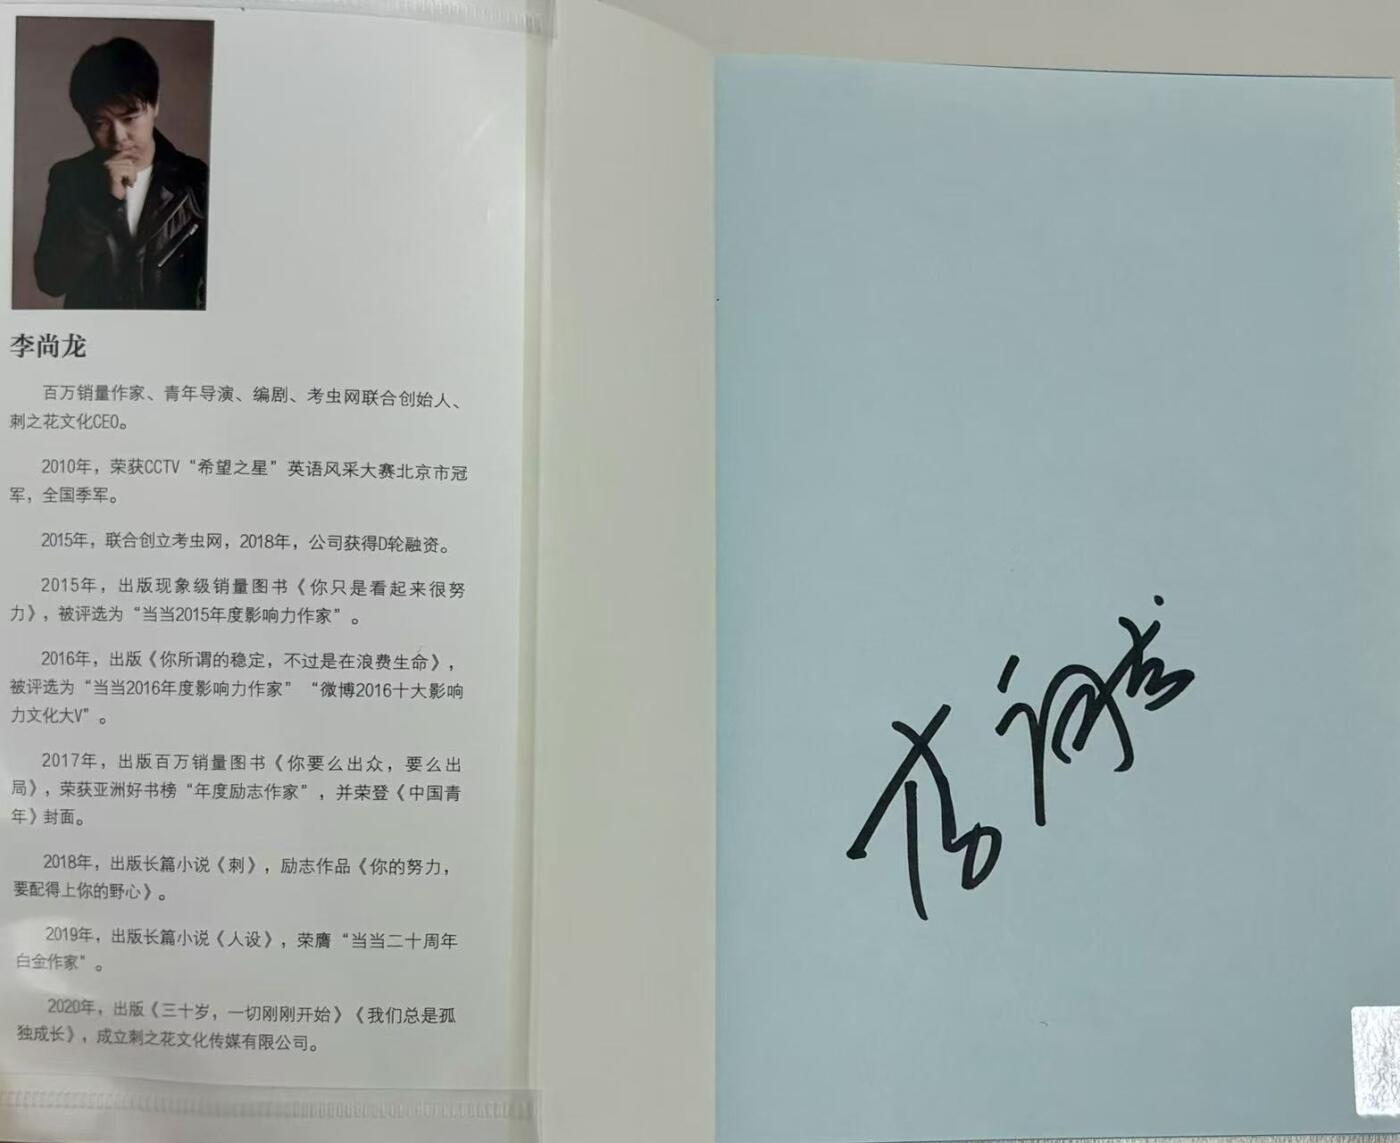 李尚龙
百万销量作家、青年导演、编剧、考虫网联合创始人、
刺之花文化CEO。
2010年，荣获CCTV“希望之星”英语风采大赛北京市冠
军，全国季军。
2015年，联合创立考虫网，2018年，公司获得D轮融资。
2015年，出版现象级销量图书《你只是看起来很努
力》，被评选为“当当2015年度影响力作家”。
2016年，出版《你所谓的稳定，不过是在浪费生命》，
被评选为“当当2016年度影响力作家”“微博2016十大影响
力文化大V”。
2017年，出版百万销量图书《你要么出众，要么出
局》，荣获亚洲好书榜“年度励志作家”，并荣登《中国青
年》封面。
2018年，出版长篇小说《刺》，励志作品《你的努力，
要配得上你的野心》。
2019年，出版长篇小说《人设》，荣膺“当当二十周年
白金作家”。
2020年，出版《三十岁，一切刚刚开始》《我们总是孤
独成长》，成立刺之花文化传媒有限公司。
李尚龙